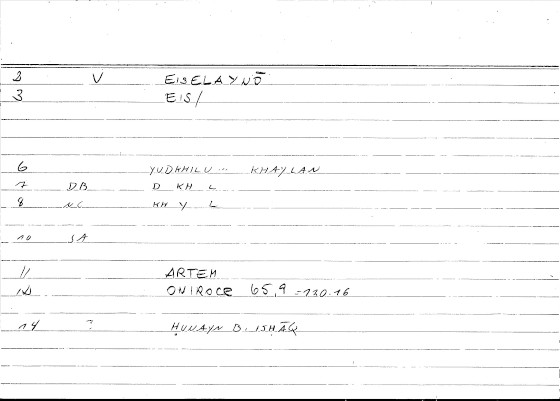 2 V EISELAYNŌ
3 EIS/
6 YUDKHILU ... KHAYLAN
7 DB D KH L
8 NC KH Y L
10 SA
11 ARTEM
12 ONIROCR 65,9 = 120.16
14 ? ḤUNAYN B. ISḤĀQ